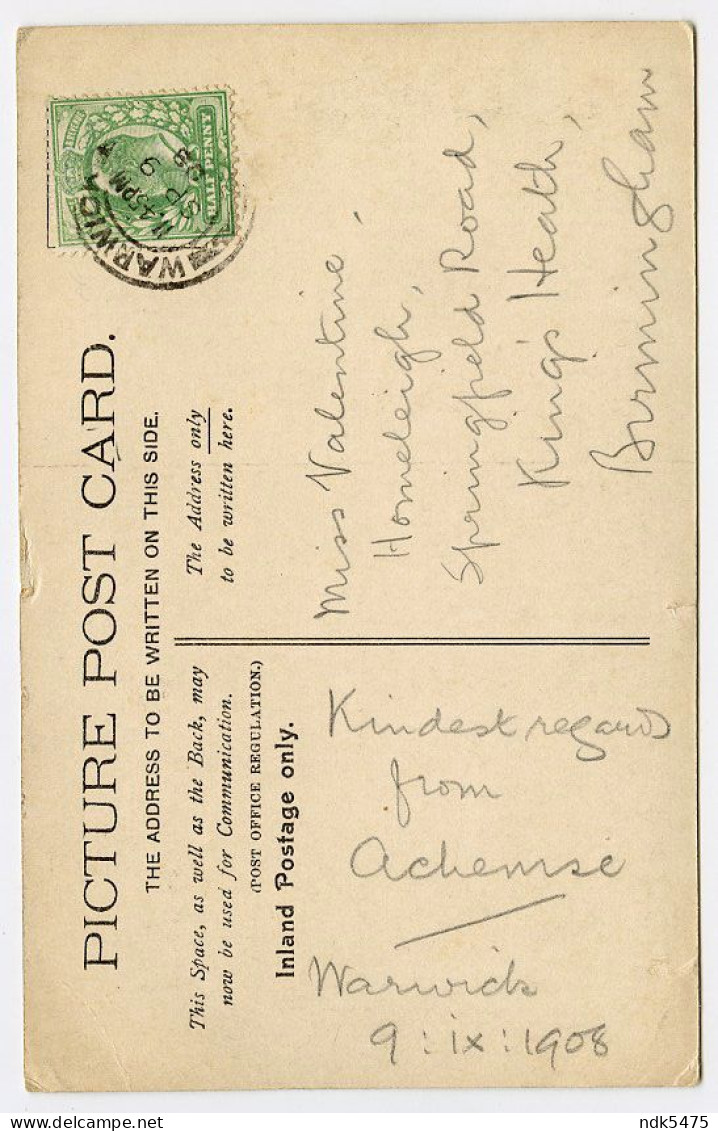 PICTURE POST CARD.
THE ADDRESS TO BE WRITTEN ON THIS SIDE.
This Space, as well as the Back, may
now be used for Communication.
(POST OFFICE REGULATION.)
Inland Postage only.
Kindest regards
from
Warwick
9 : ix : 1908
The Address only
to be written here.
Miss Valentine.
Homeleigh,
Springfield Road,
King's Heath,
Birmingham
WARWICK
SP 9
08
HALFPENNY
ndk5475